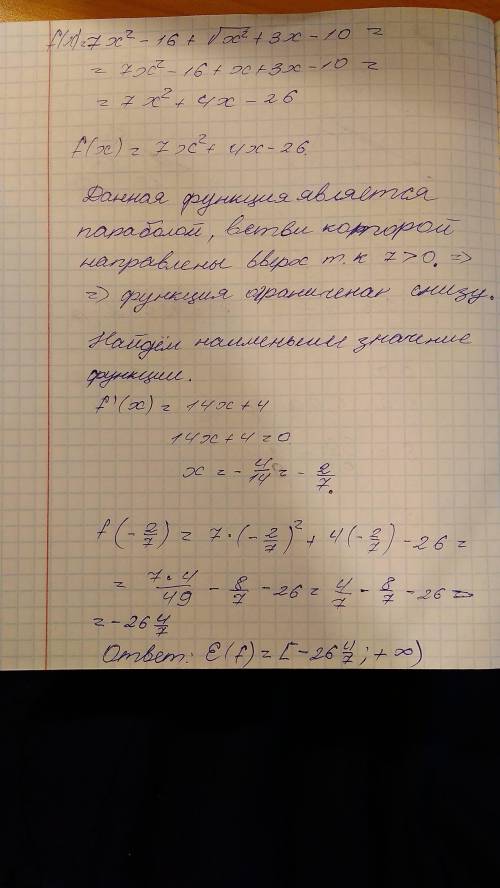 f(x)=7x² - 16 + √x² + 3x - 10 =
= 7x² - 16 + x + 3x - 10 =
= 7x² + 4x - 26
f(x) = 7x² + 4x - 26.
Данная функция является
параболой, ветви которой
направлены вверх т.к 7>0. =>
=> функция ограниченак снизу.
Найдём наименьшее значение
функции.
f'(x) = 14x + 4
14x + 4 = 0
x = - 4/14 = - 2/7.
f(- 2/7) = 7·(- 2/7)² + 4(- 2/7) - 26 =
= 7·4/49 - 8/7 - 26 = 4/7 - 8/7 - 26 =
= - 26 4/7
Ответ: E(f) = [- 26 4/7; + ∞)